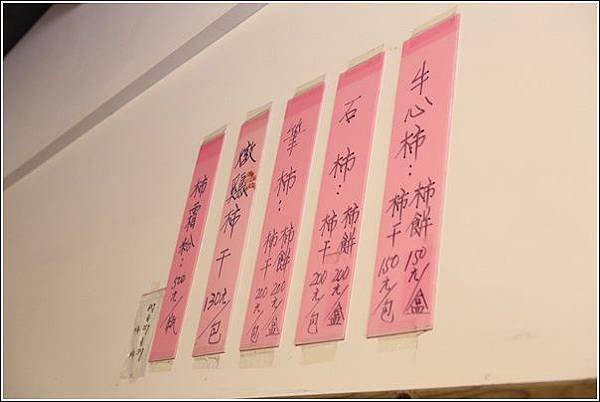 牛心柿：柿餅150元/盒
柿干150元/包
石柿：柿餅200元/盒
柿干200元/包
筆柿：柿餅200元/盒
柿干200元/包
嫩頭柿干130元/包
柿霜粉：500元/